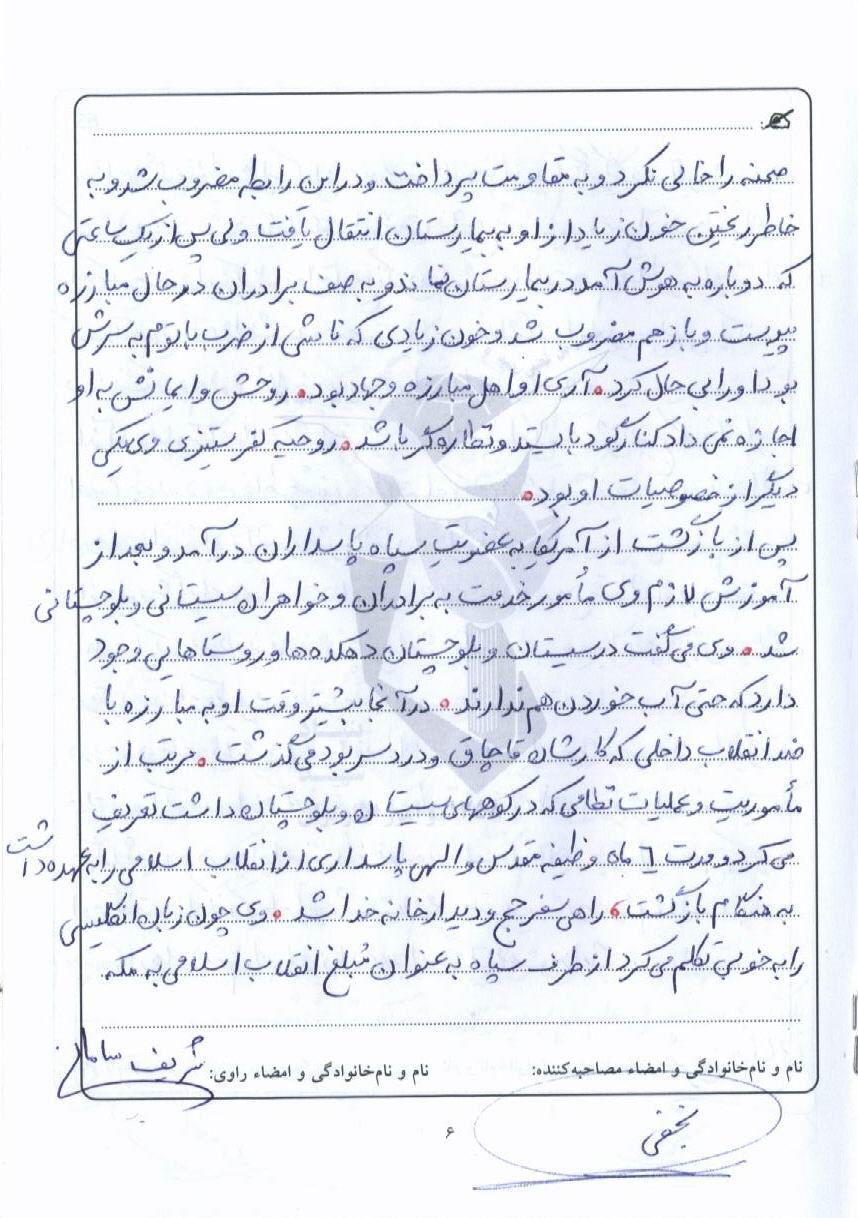 صحنه را خالی نکرد و به مقاومت پرداخت و در این رابطه مضروب شد و به
خاطر ریختن خون زیاد از او به بیمارستان انتقال یافت ولی پس از یک ساعتی
که دوباره به هوش آمد در بیمارستان نماند و به صف برادران در حال مبارزه
پیوست و باز هم مضروب شد و خون زیادی که ناشی از ضرب باتوم به سرش
بود او را بی حال کرد. آری او اهل مبارزه و جهاد بود. روحش و ایمانش به او
اجازه نمی داد کنار گود بایستد و نظاره گر باشد. روحیه کفر ستیزی وی یکی
دیگر از خصوصیات او بود.
پس از بازگشت از آمریکا به عضویت سپاه پاسداران در آمد و بعد از
آموزش لازم وی مأمور خدمت به برادران و خواهران سیستانی و بلوچستانی
شد. وی می گفت در سیستان و بلوچستان دهکده ها و روستاهایی وجود
دارد که حتی آب خوردن هم ندارند. در آنجا بیشتر وقت او به مبارزه با
ضد انقلاب داخلی که کارشان قاچاق و دردسر بود می گذشت. مرتب از
مأموریت و عملیات نظامی که در کوههای سیستان و بلوچستان داشت تعریف
می کرد و مدت ٦ ماه وظیفه مقدس و الهی پاسداری از انقلاب اسلامی را به عهده داشت
به هنگام بازگشت، راهی سفر حج و دیدار خانه خدا شد. وی چون زبان انگلیسی
را به خوبی تکلم می کرد از طرف سپاه به عنوان مُبلغ انقلاب اسلامی به مکه
نام و نام‌خانوادگی و امضاء مصاحبه‌کننده: نام و نام‌خانوادگی و امضاء راوی: شریف سامان
نجفی
۶